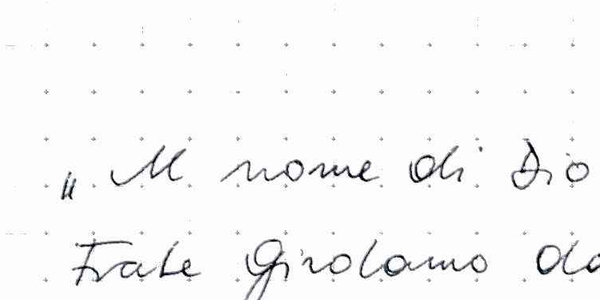 „ Il nome di Dio
Frate Girolamo da